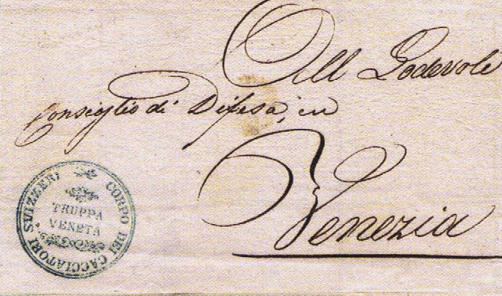 All Lodevole
Consiglio di Difesa, in
Venezia
CORPO DEI CACCIATORI SVIZZERI
TRUPPA
VENETA